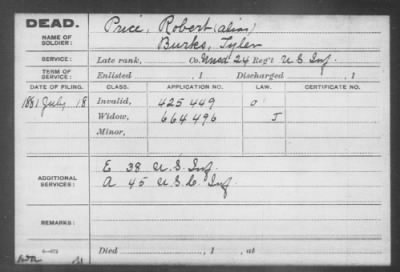 DEAD.
Price, Robert (alias)
NAME OF SOLDIER:
Burks, Tyler
SERVICE: Late rank, Co. Unas 24 Reg't U.S. Inf.
TERM OF SERVICE: Enlisted , 1 Discharged , 1
DATE OF FILING. CLASS. APPLICATION NO. LAW. CERTIFICATE NO.
1881 July 18 Invalid, 425 449
Widow, 664 496 J
Minor,
E 38 U.S. Inf.
ADDITIONAL SERVICES:
A 45 U.S.C. Inf.
REMARKS:
Died , 1 , at